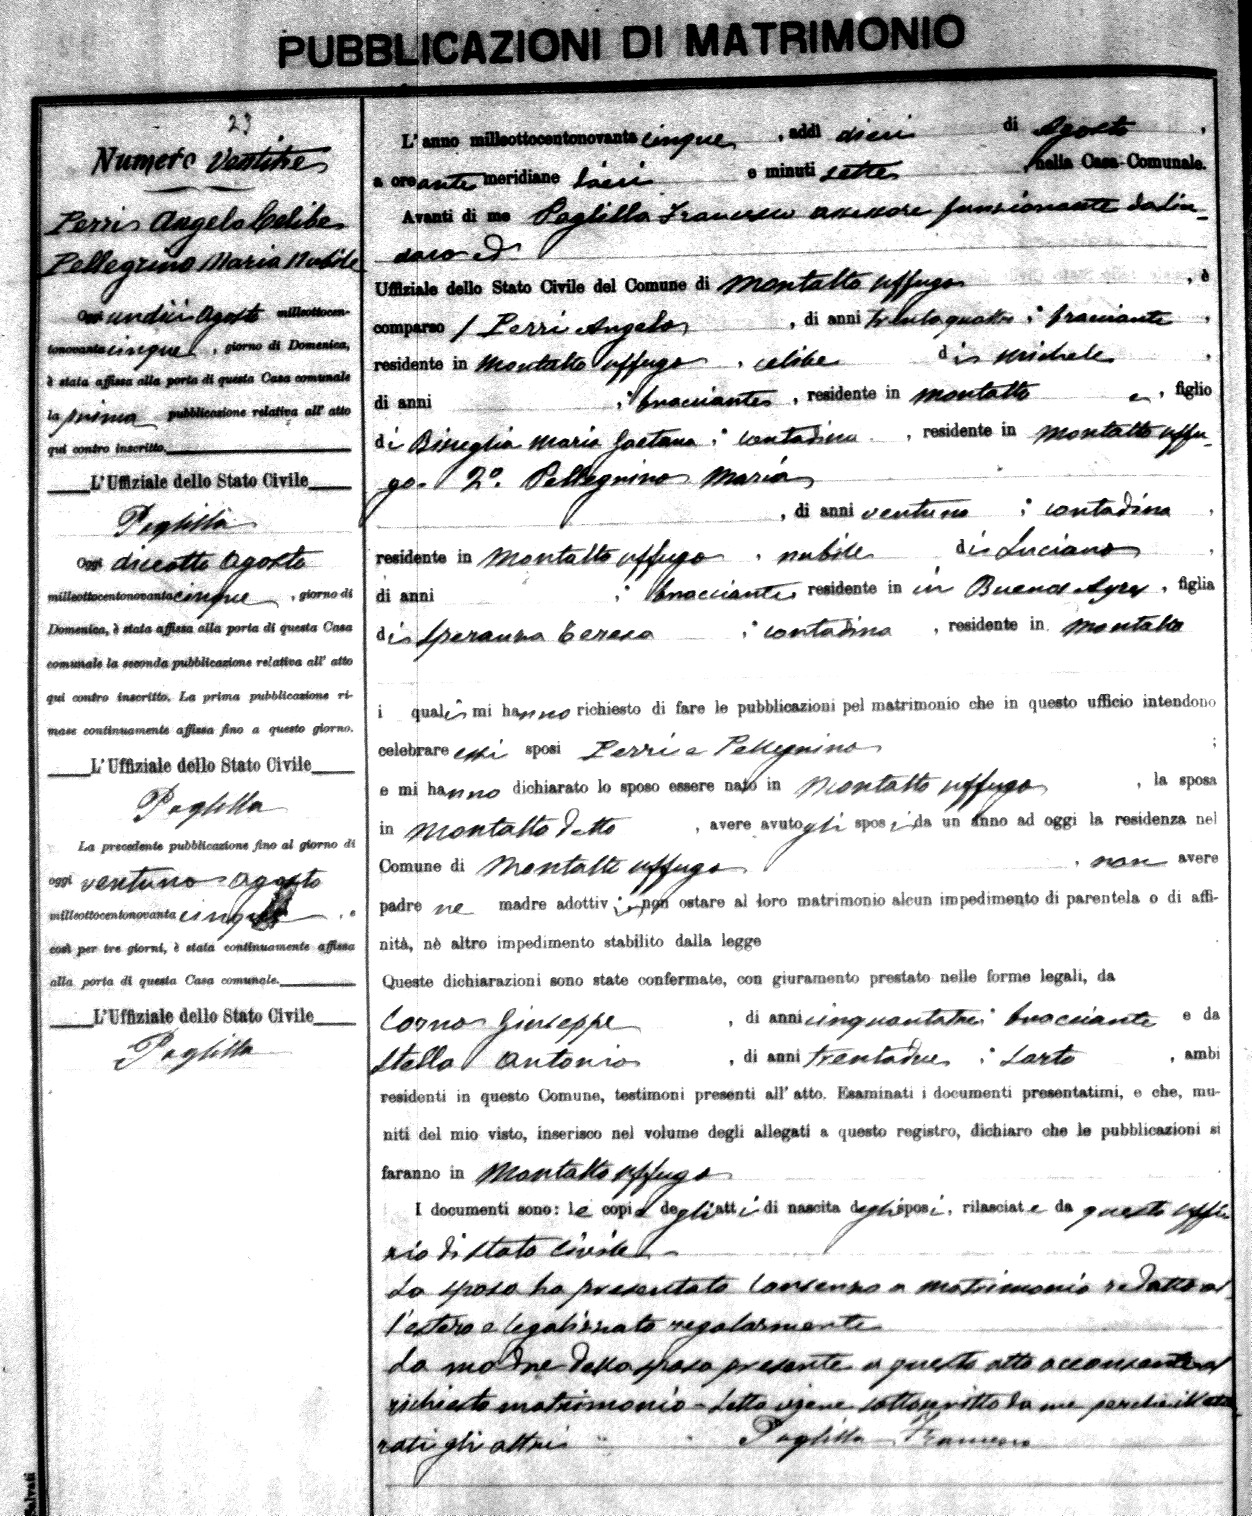 PUBBLICAZIONI DI MATRIMONIO
23
Numero Ventitre
Perri Angelo Celibe
Pellegrino Maria Nubile
Oggi undici Agosto milleottocen-
tonovantacinque, giorno di Domenica,
è stata affissa alla porta di questa Casa comunale
la prima pubblicazione relativa all' atto
qui contro inscritto.
L'Uffiziale dello Stato Civile
Paglilla
Oggi diciotto Agosto
milleottocentonovantacinque, giorno di
Domenica, è stata affissa alla porta di questa Casa
comunale la seconda pubblicazione relativa all' atto
qui contro inscritto. La prima pubblicazione ri-
mase continuamente affissa fino a questo giorno.
L'Uffiziale dello Stato Civile
Paglilla
La precedente pubblicazione fino al giorno di
oggi ventuno Agosto
milleottocentonovanta cinque, e
così per tre giorni, è stata continuamente affissa
alla porta di questa Casa comunale.
L'Uffiziale dello Stato Civile
Paglilla
L'anno milleottocentonovantacinque, addì dieci di Agosto,
a ore ante meridiane dieci e minuti sette, nella Casa Comunale.
Avanti di me Paglilla Francesco assessore funzionante da Sin-
daco ed
Uffiziale dello Stato Civile del Comune di Montalto Uffugo, è
comparso 1 Perri Angelo, di anni trentaquattro; bracciante,
residente in Montalto Uffugo, celibe di Michele,
di anni ; bracciante, residente in Montalto e, figlio
di Bisceglia Maria Gaetana; contadina, residente in Montalto Uffu-
go. 2º. Pellegrino Maria
, di anni ventuno; contadina,
residente in Montalto Uffugo, nubile di Luciano,
di anni ; bracciante residente in in Buenos Ayres, figlia
di Speranza Teresa; contadina, residente in Montalto
i quali mi hanno richiesto di fare le pubblicazioni pel matrimonio che in questo ufficio intendono
celebrare essi sposi Perri e Pellegrino;
e mi hanno dichiarato lo sposo essere nato in Montalto Uffugo, la sposa
in Montalto detto, avere avuto gli sposi da un anno ad oggi la residenza nel
Comune di Montalto Uffugo, non avere
padre ne madre adottivi; non ostare al loro matrimonio alcun impedimento di parentela o di affi-
nità, nè altro impedimento stabilito dalla legge
Queste dichiarazioni sono state confermate, con giuramento prestato nelle forme legali, da
Corno Giuseppe, di anni cinquantatre; bracciante e da
Stella Antonio, di anni trentadue; sarto, ambi
residenti in questo Comune, testimoni presenti all' atto. Esaminati i documenti presentatimi, e che, mu-
niti del mio visto, inserisco nel volume degli allegati a questo registro, dichiaro che le pubblicazioni si
faranno in Montalto Uffugo
I documenti sono: le copie degli atti di nascita degli sposi, rilasciate da questo Uffi-
zio di stato Civile
La sposa ha presentato consenso a matrimonio redatto al-
l'estero e legalizzato regolarmente
La madre della sposa presente a questo atto acconsente al
richiesto matrimonio - Letto viene sottoscritto da me perchè illette-
rati gli altri
Paglilla Francesco
Salvati